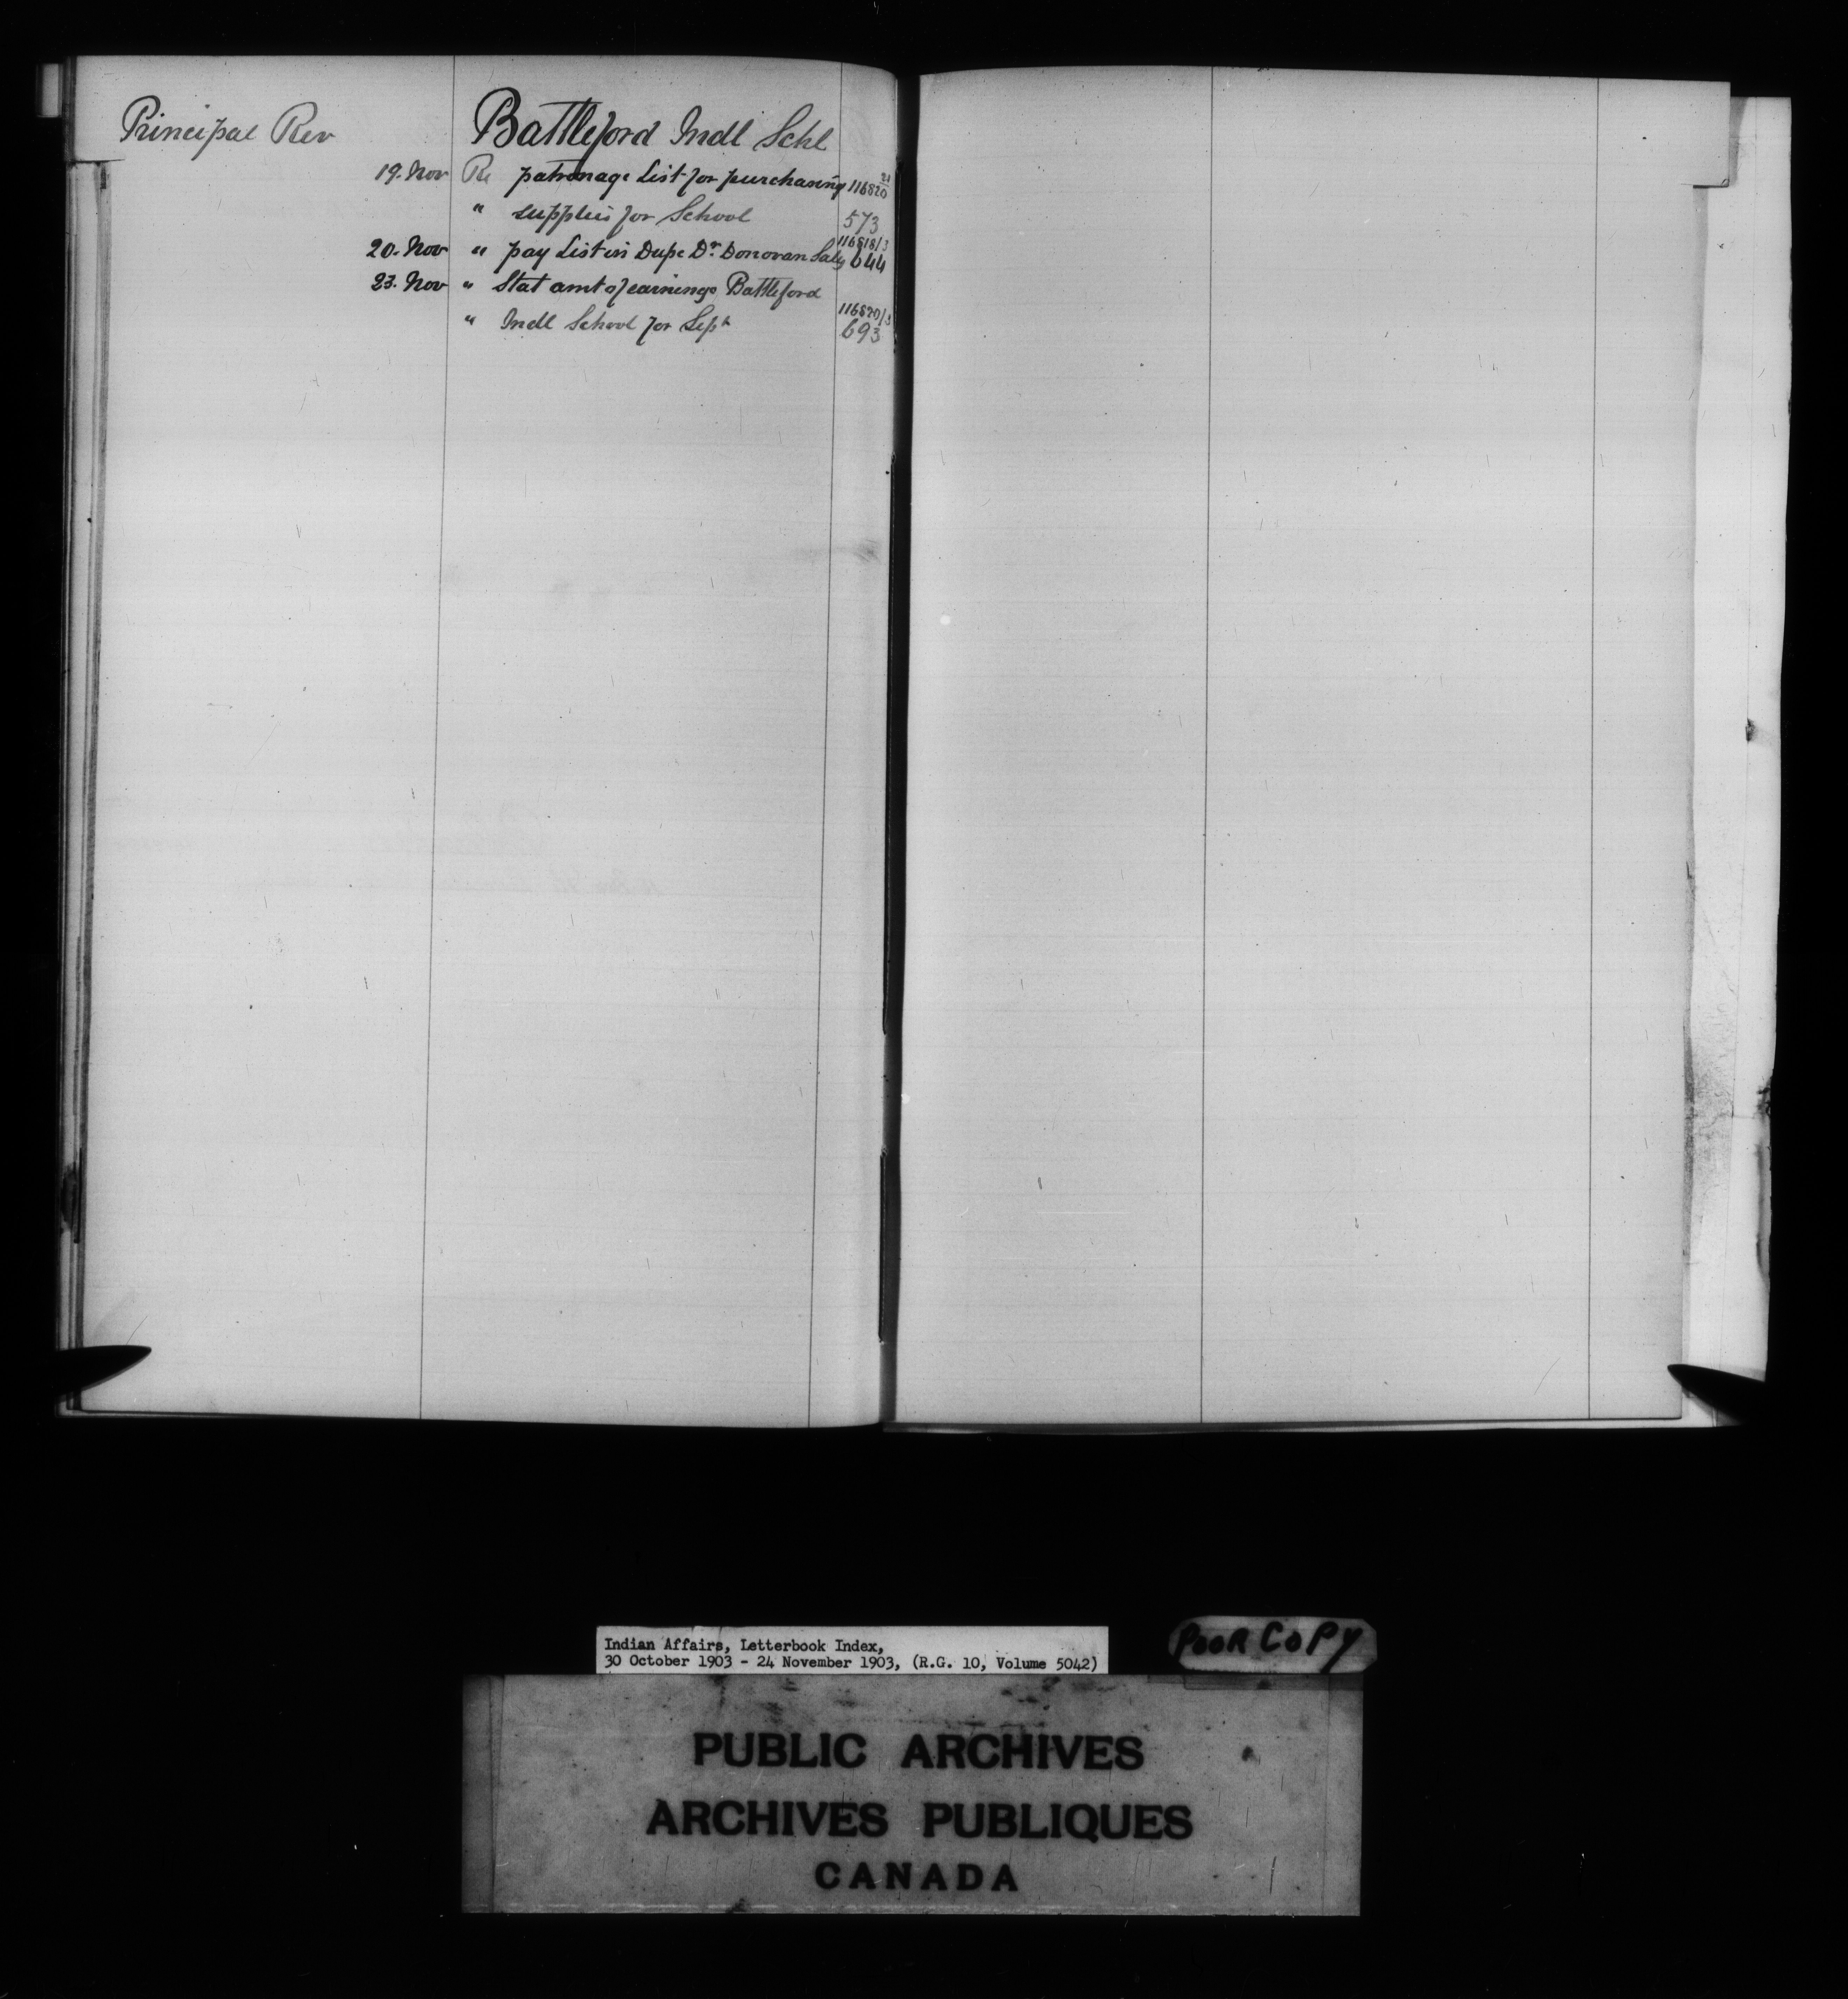 Principal Rev Battleford Indl Schl
19. Nov Re patronage List for purchasing 116820/21
" supplies for School 573
20. Nov " pay List in Dupe Dr. Donovan Saly 116818/3 644
23. Nov " Stat amt of earnings Battleford
" Indl School for Sept 116820/3 693
Indian Affairs, Letterbook Index,
30 October 1903 - 24 November 1903, (R.G. 10, Volume 5042)
POOR COPY
PUBLIC ARCHIVES
ARCHIVES PUBLIQUES
CANADA